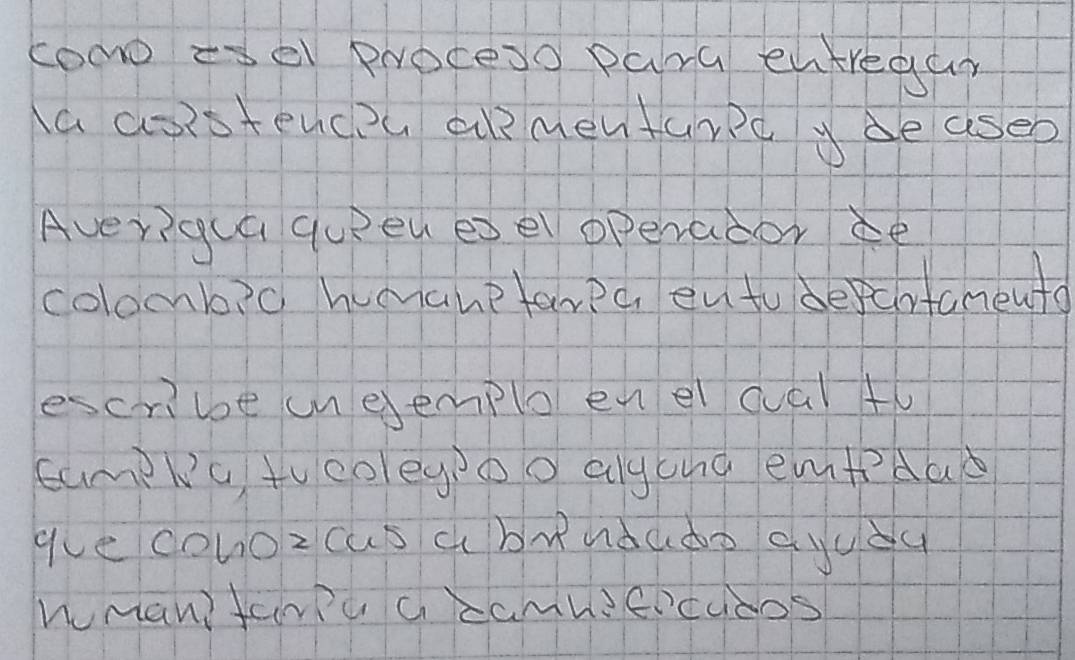 como es el proceso para entregar
la asistencia alimentaria y de aseo
Averigua quien es el operador de
colombia humanitaria en tu departamento
escribe un egemplo en el cual tu
familia, tu colegio o alguna emtidad
que conozcas a brindado ayuda
humanitaria a damnificados